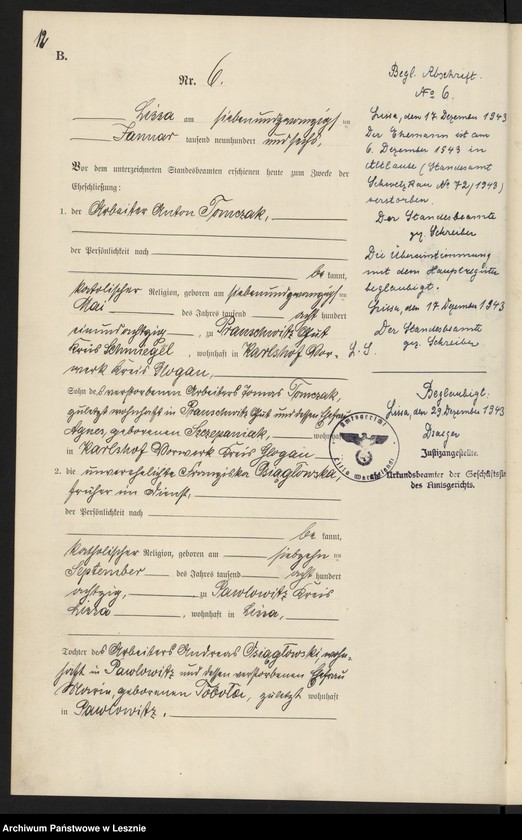 12
B.
Nr. 6.
Lissa am siebenundzwanzigsten
Januar tausend neunhundert und sechs.
Vor dem unterzeichneten Standesbeamten erschienen heute zum Zwecke der
Eheschließung:
1. der Arbeiter Anton Tomczak,
der Persönlichkeit nach
be kannt,
katholischer Religion, geboren am siebenundzwanzigsten
Mai des Jahres tausend acht hundert
einundachtzig, zu Pranschwitz Gut
Kreis Schmiegel, wohnhaft in Karlshof Vor-
werk Kreis Glogau,
Sohn des verstorbenen Arbeiters Tomas Tomczak,
zuletzt wohnhaft in Pranschwitz Gut und dessen Ehefrau
Agnes, geborenen Szczepaniak, wohnhaft
in Karlshof Vorwerk Kreis Glogau
2. die unverehelichte Franziska Dziągłowska,
früher im Dienst,
der Persönlichkeit nach
be kannt,
katholischer Religion, geboren am siebzehn ten
September des Jahres tausend acht hundert
achtzig, zu Pawlowitz Kreis
Lissa, wohnhaft in Lissa,
Tochter des Arbeiters Andreas Dziągłowski, wohn-
haft in Pawlowitz und dessen verstorbenen Ehefrau
Marie, geborenen Tobola, zuletzt wohnhaft
in Pawlowitz.
Begl. Abschrift.
No 6.
Lissa, den 17. Dezember 1943
Der Ehemann ist am
6. Dezember 1943 in
Altlaube (Standesamt
Schwetzkau No 72/1943)
verstorben.
Der Standesbeamte
gez. Schreiber
Die Übereinstimmung
mit dem Hauptregister
beglaubigt.
Lissa, den 17. Dezember 1943
Der Standesbeamte
L. S. gez. Schreiber
Beglaubigt:
Lissa, den 29. Dezember 1943
Draeger
Justizangestellte.
Urkundsbeamter der Geschäftsstelle
des Amtsgerichts.
Amtsgericht
Lissa Wartheland
Archiwum Państwowe w Lesznie